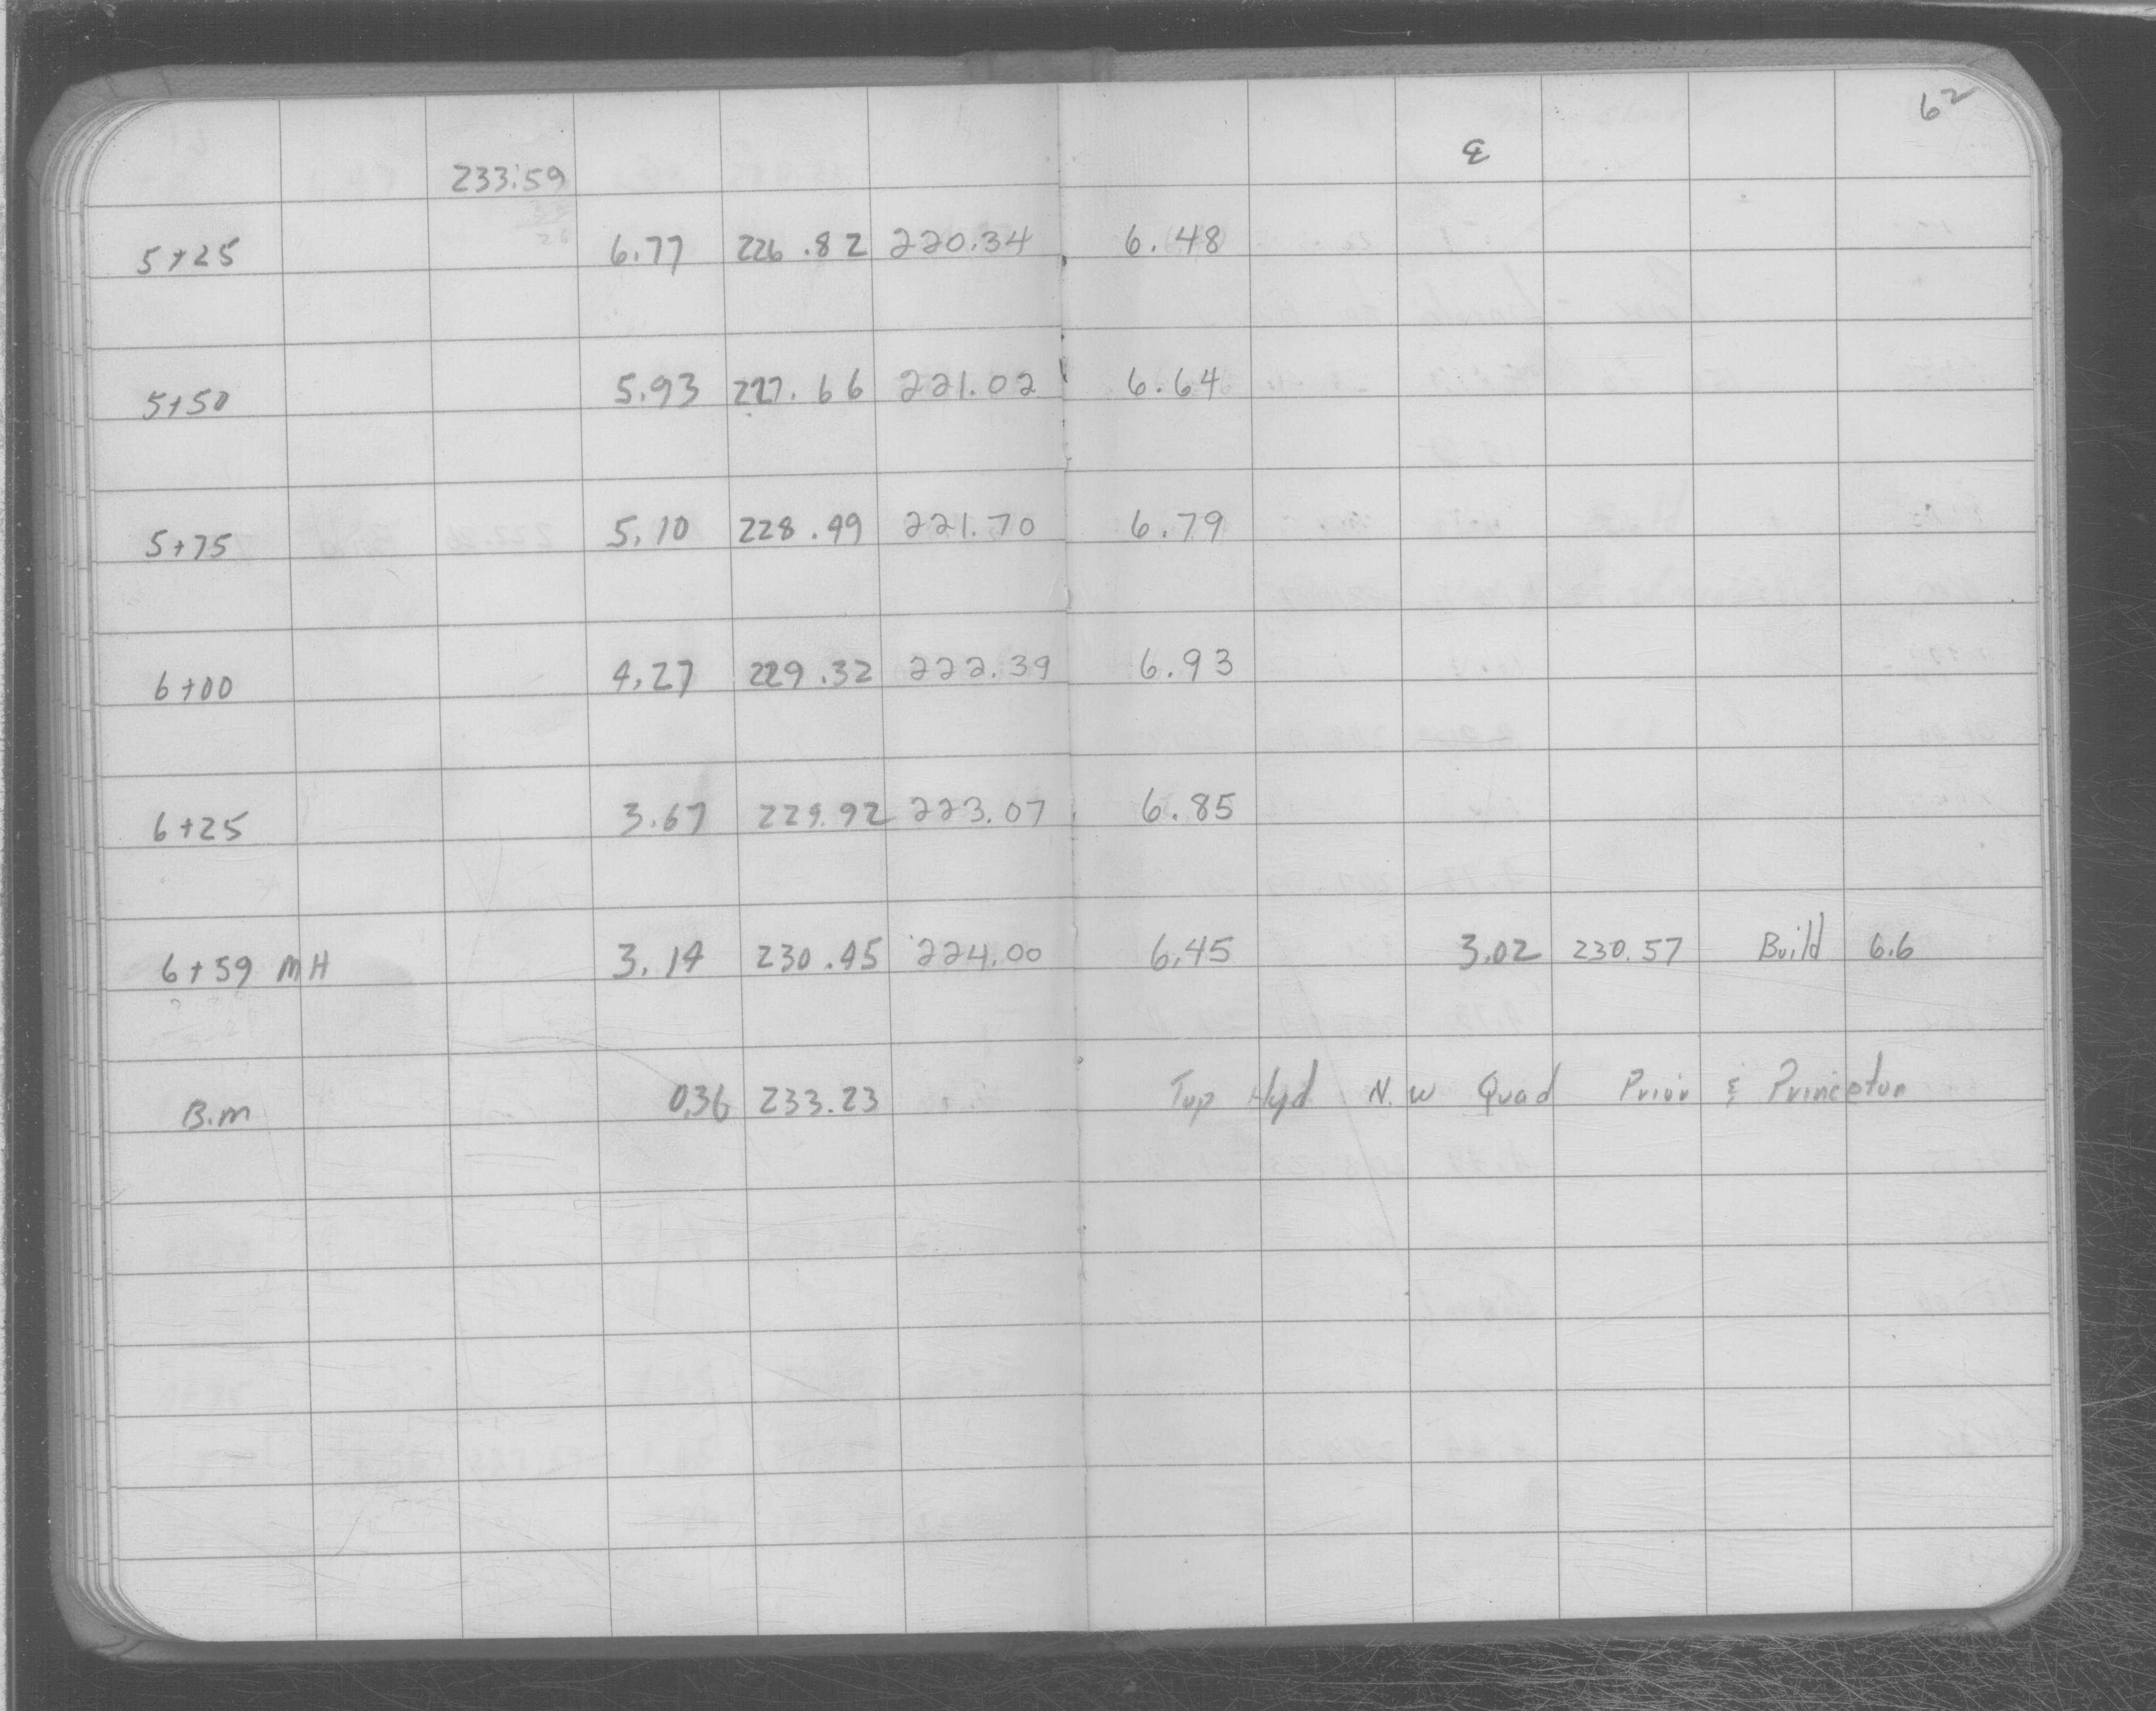 62
℄
233.59
5+25 6.77 226.82 220.34 6.48
5+50 5.93 227.66 221.02 6.64
5+75 5.10 228.49 221.70 6.79
6+00 4.27 229.32 222.39 6.93
6+25 3.67 229.92 223.07 6.85
6+59 MH 3.14 230.45 224.00 6.45 3.02 230.57 Build 6.6
B.M 0.36 233.23 Top Hyd N.W Quad Prior & Princeton